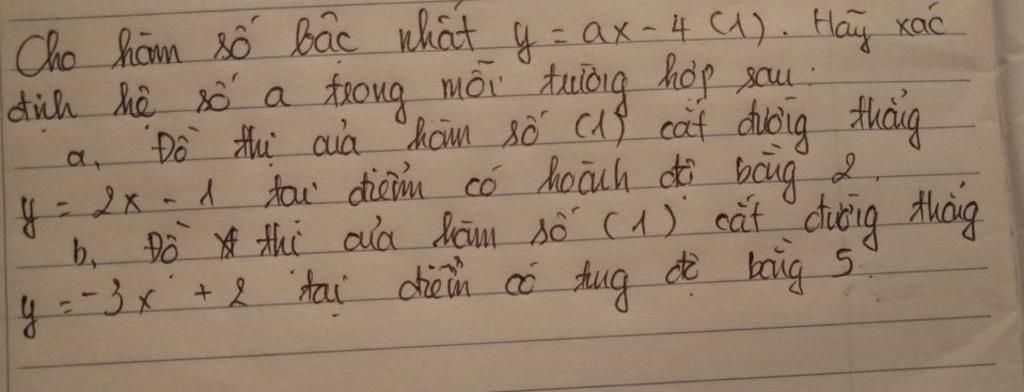 Cho hàm số bậc nhất y = ax - 4 (1). Hãy xác
định hệ số a trong mỗi trường hợp sau:
a, Đồ thị của hàm số (1) cắt đường thẳng
y = 2x - 1 tại điểm có hoành độ bằng 2.
b, Đồ thị của hàm số (1) cắt đường thẳng
y = -3x + 2 tại điểm có tung độ bằng 5.